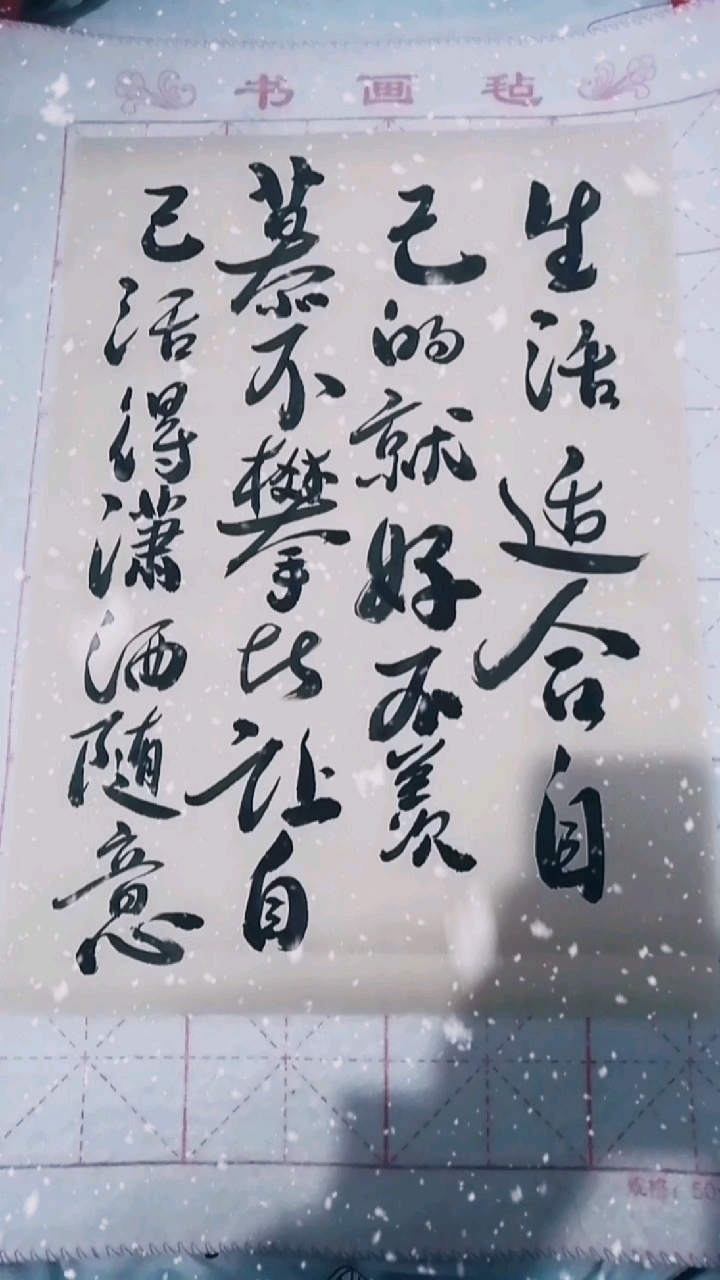 书画毡
生活适合自
己的就好不羡
慕不攀比让自
己活得潇洒随意